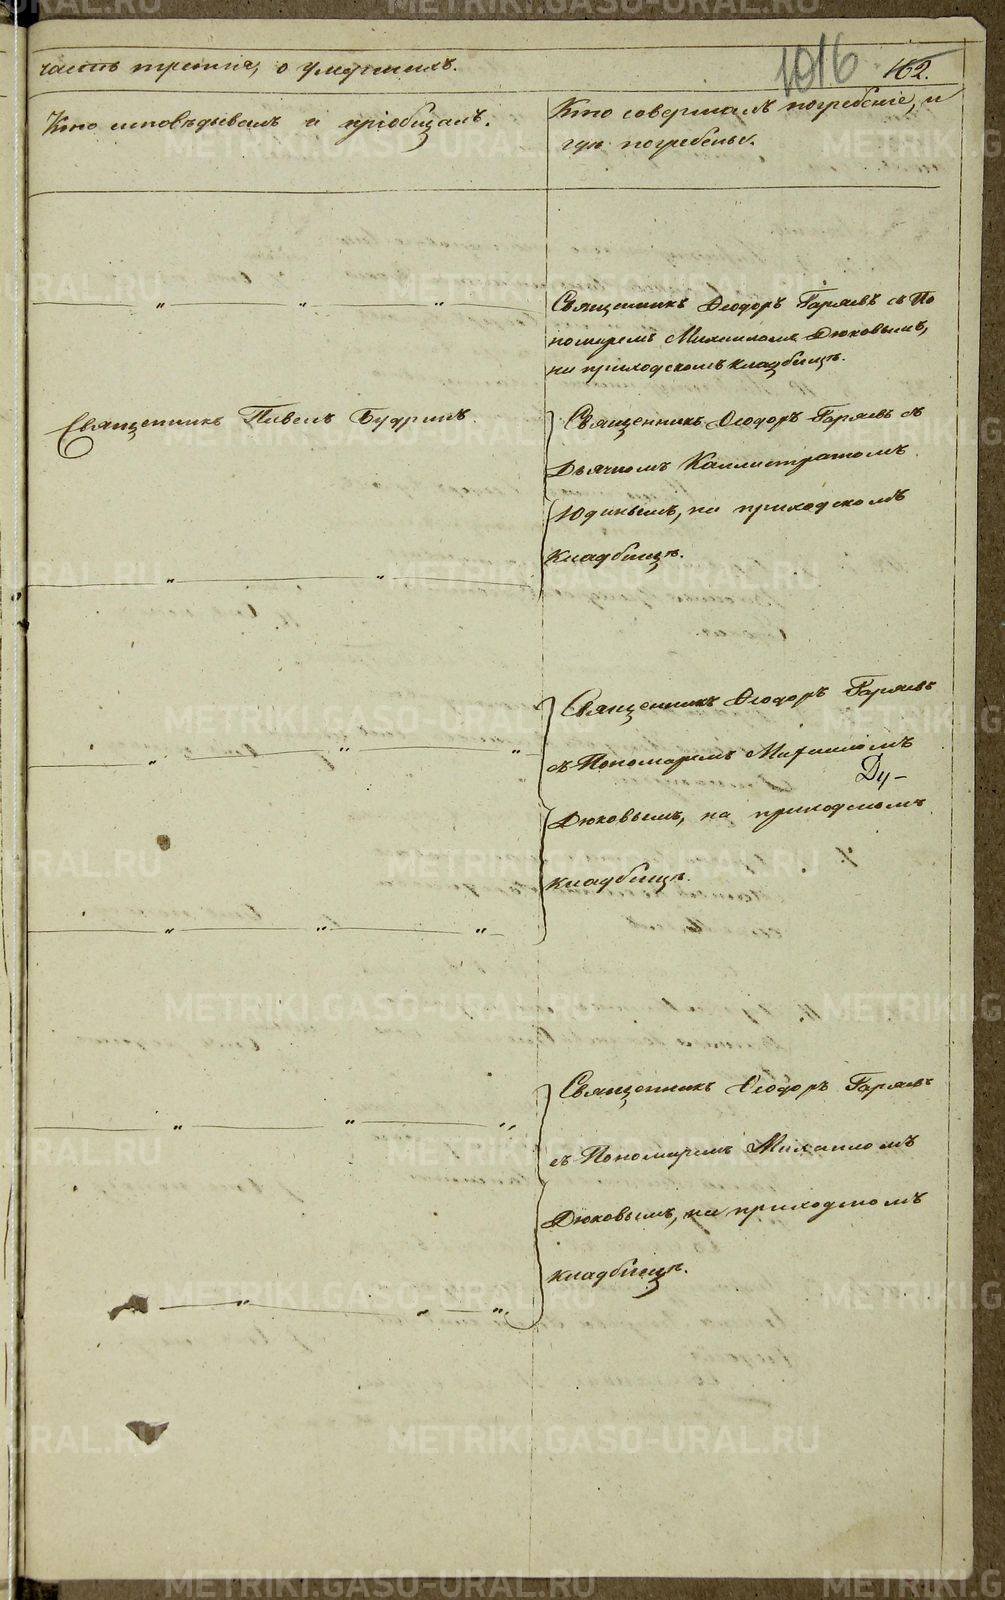 часть третия, о умершихъ.
1016
162.
Кто исповѣдывалъ и пріобщалъ.
Кто совершалъ погребеніе, и
гдѣ погребены.
Священникъ Ѳеодоръ Гаряевъ съ По
номаремъ Михаиломъ Дюковымъ,
на приходскомъ кладбищѣ.
Священникъ Павелъ Будринъ.
Священникъ Ѳеодоръ Гаряевъ съ
Дьячкомъ Каллистратомъ
Юдинымъ, на приходскомъ
кладбищѣ.
Священникъ Ѳеодоръ Гаряевъ
съ Пономаремъ Михаиломъ
Дю-
Дюковымъ, на приходскомъ
кладбищѣ.
Священникъ Ѳеодоръ Гаряевъ
съ Пономаремъ Михаиломъ
Дюковымъ, на приходскомъ
кладбищѣ.
METRIKI.GASO-URAL.RU